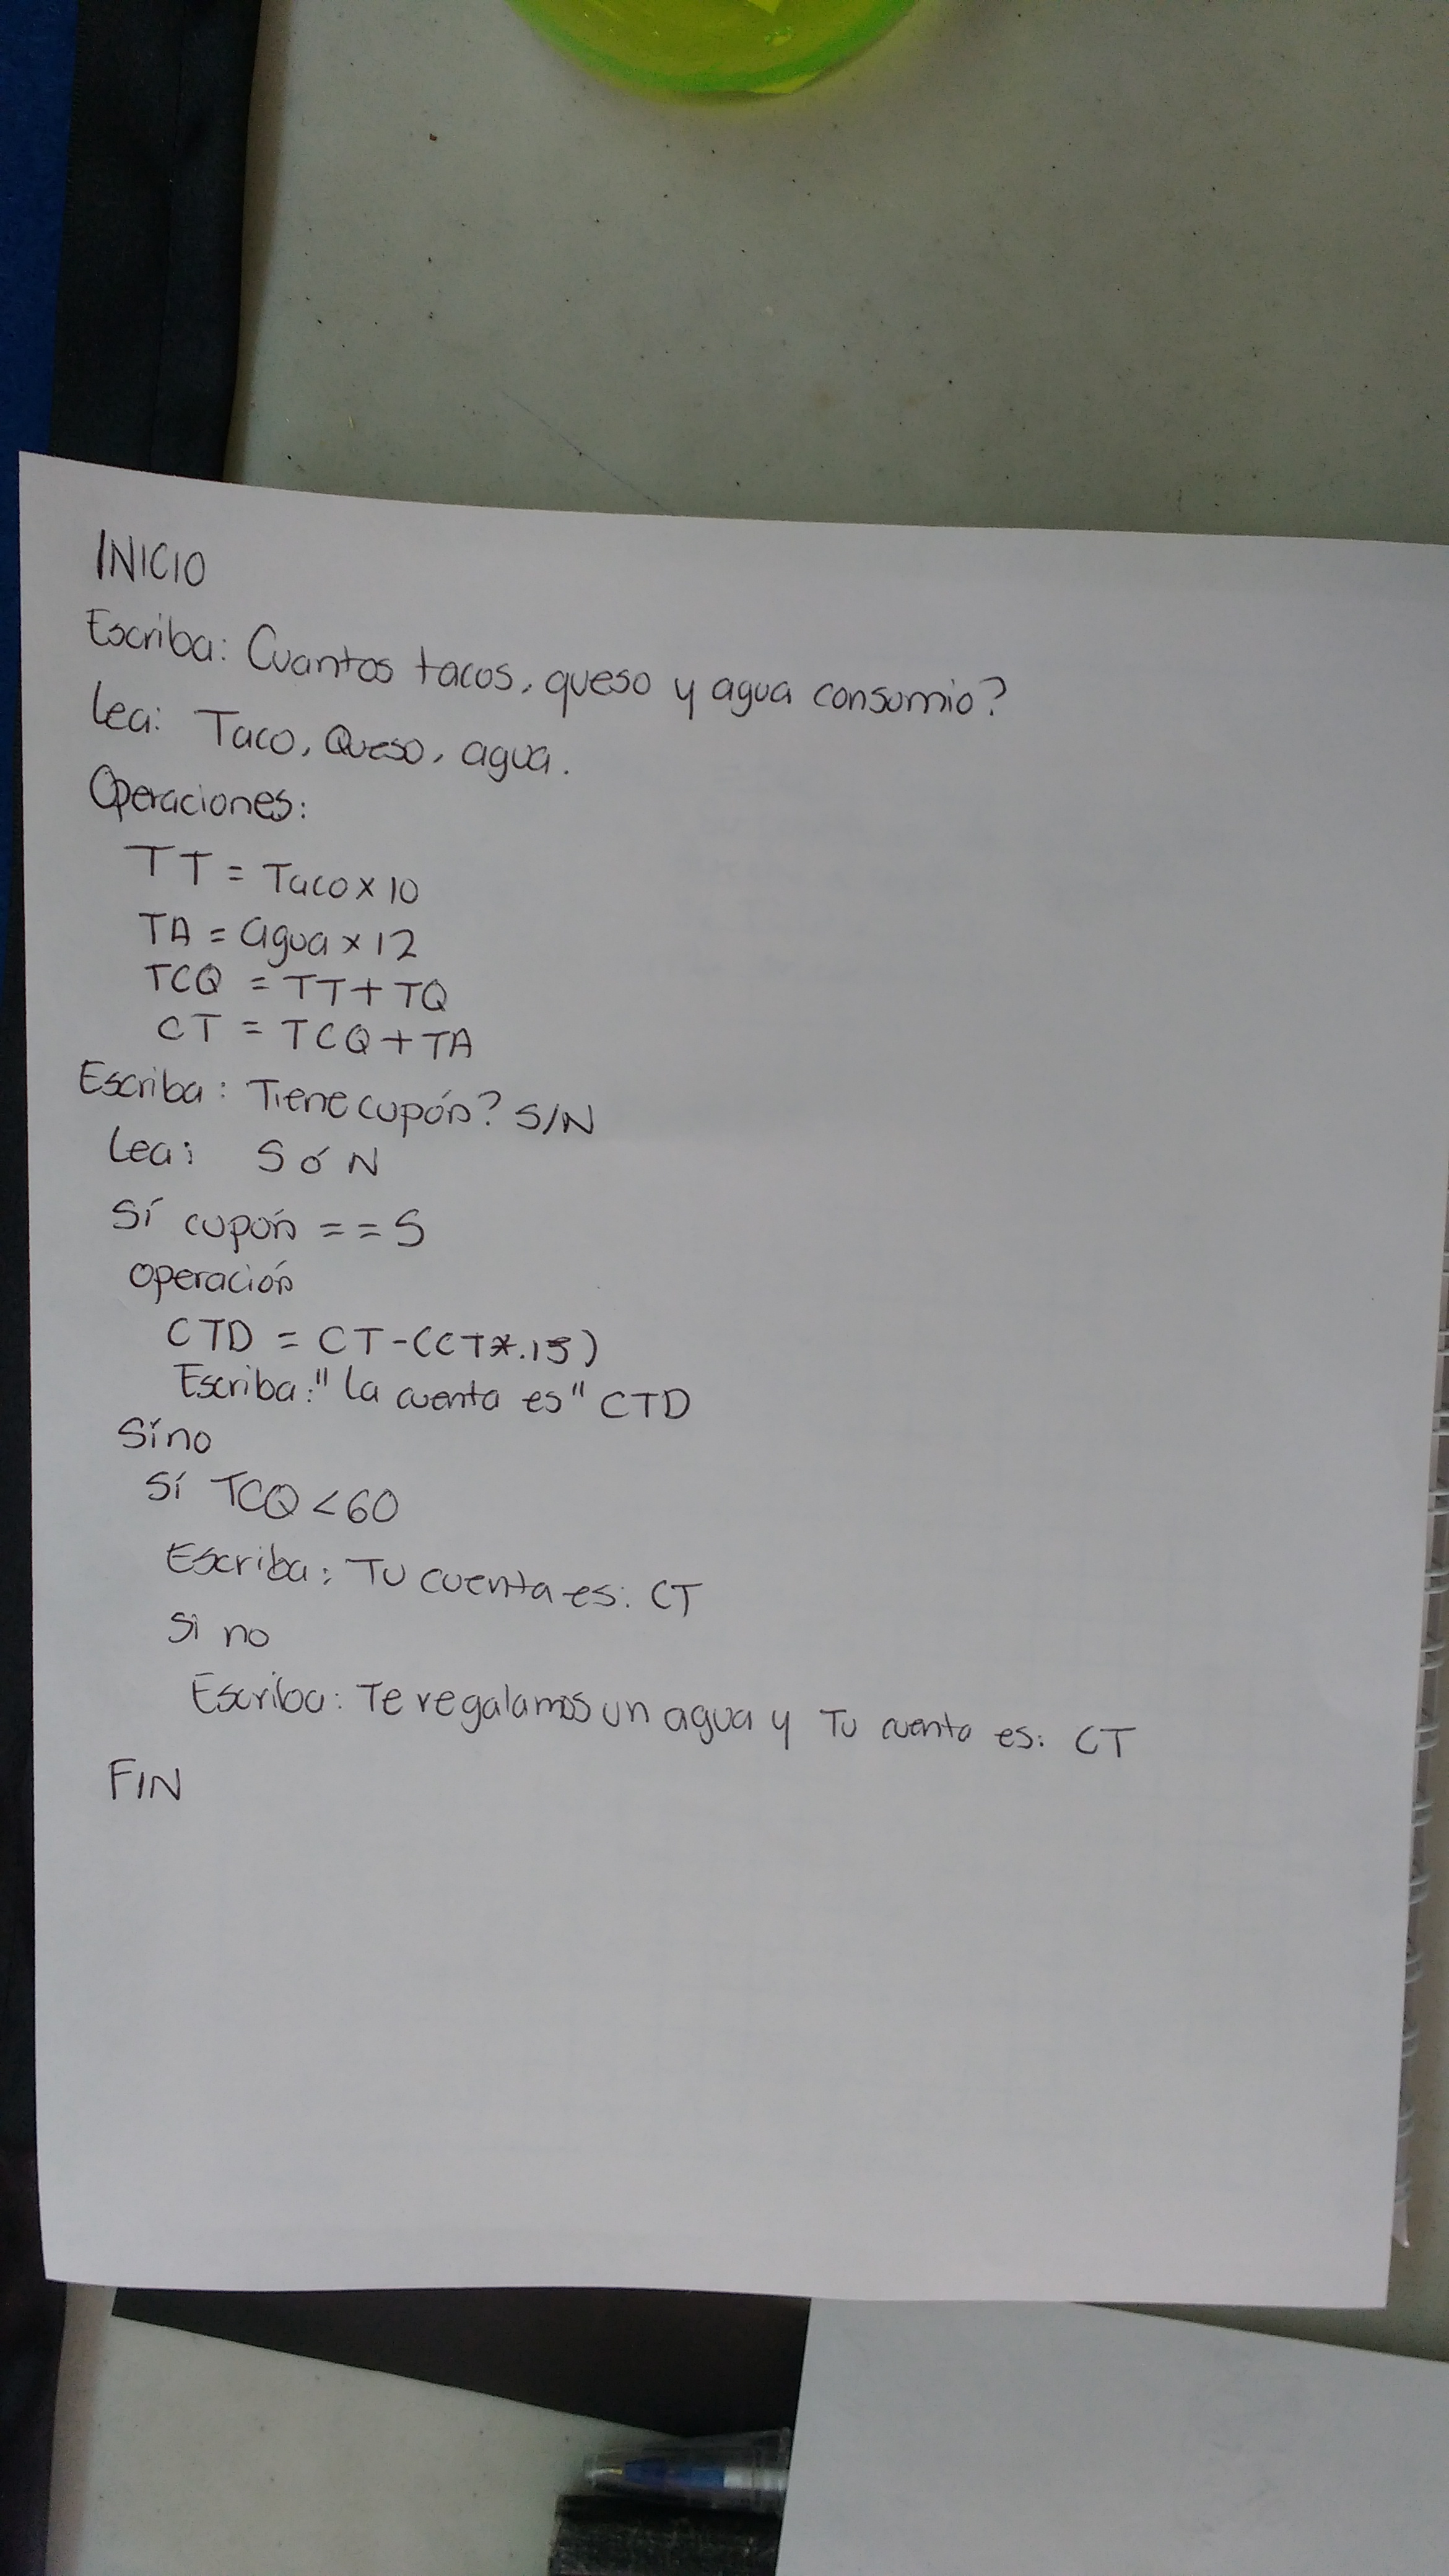 INICIO
Escriba: Cuantos tacos, queso y agua consumio?
Lea: Taco, Queso, agua.
Operaciones:
TT = Taco x 10
TA = agua x 12
TCQ = TT + TQ
CT = TCQ + TA
Escriba: Tiene cupón? S/N
Lea: S ó N
Sí cupón == S
operación
CTD = CT-(CT*.15)
Escriba: "la cuenta es" CTD
Síno
Sí TCQ < 60
Escriba: Tu cuenta es: CT
Si no
Escriba: Te regalamos un agua y Tu cuenta es: CT
FIN